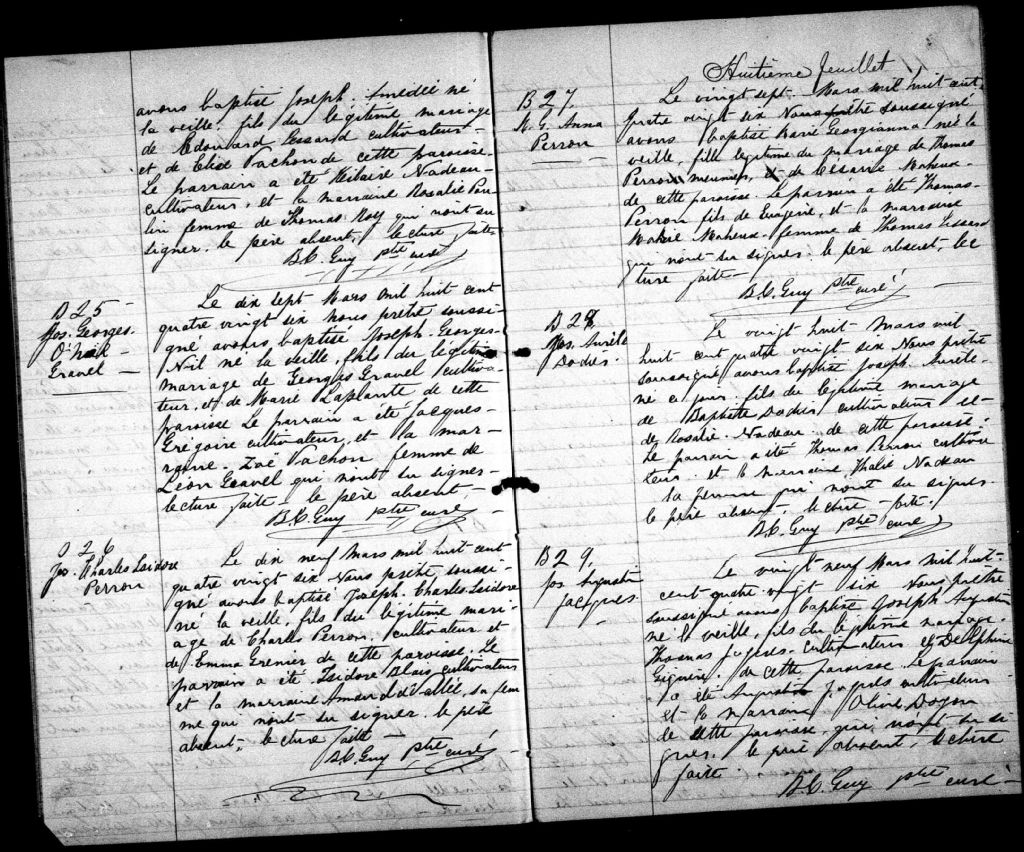 avons baptisé Joseph. Amédée né
la veille, fils du légitime mariage
de Edouard Lessard cultivateur
et de Elise Vachon de cette paroisse.
Le parrain a été Hilaire Nadeau
cultivateur, et la marraine Rosalie Pou-
lin femme de Thomas Roy qui n'ont su
signer. le père absent, lecture faite
B.C. Guy ptre curé
B 25
Jos. Georges
Gravel
Le dix sept Mars mil huit cent
quatre vingt six nous prêtre soussi-
gné avons baptisé Joseph. Georges
né la veille, fils du légitime
mariage de Georges Gravel cultiva-
teur, et de Marie Laplante, de cette
paroisse Le parrain a été Jacques
Grégoire cultivateur, et la mar-
raine Zoë Vachon femme de
Léon Gravel qui n'ont su signer
lecture faite le père absent,
B.C. Guy ptre curé
B 26
Jos. Charles Isidore
Perron
Le dix neuf Mars mil huit cent
quatre vingt six Nous prêtre soussi-
gné avons baptisé Joseph. Charles Isidore
né la veille, fils du légitime mari-
age de Charles Perron, cultivateur et
de Emma Grenier de cette paroisse. Le
parrain a été Isidore Blais cultivateur
et la marraine sa fem
me qui n'ont su signer. le père
absent, lecture faite
B.C. Guy ptre curé
Huitième feuillet
B 27.
M. G. Anna
Perron
Le vingt sept. Mars mil huit cent
quatre vingt six Nous prêtre soussigné
avons baptisé Marie Georgianna née la
veille, fille légitime du mariage de Thomas
Perron meunier, et de Césarie Maheux
de cette paroisse. Le parrain a été Thomas
Perron fils de et la marraine
Maheux femme de Thomas Lessard
qui n'ont su signer. le père absent lec
ture faite
B.C. Guy ptre curé
B 28
Jos. Aurèle
Dodier
Le vingt huit Mars mil
huit cent quatre vingt six Nous prêtre
soussigné avons baptisé Joseph Aurèle
né ce jour fils du légitime mariage
de Baptiste Dodier cultivateur et
de Rosalie Nadeau de cette paroisse.
Le parrain a été Thomas Perron cultiva
teur. et la marraine Thalie Nadeau
sa femme qui n'ont su signer.
le père absent, lecture faite.
B.C. Guy ptre curé
B 29.
Jos Augustin
Jacques
Le vingt neuf Mars mil huit
cent quatre vingt six Nous prêtre
soussigné avons baptisé Joseph Augustin
né la veille, fils du légitime mariage
Thomas Jacques cultivateur et Delphine
Giguère. de cette paroisse Le parrain
a été Augustin Jacques cultivateur
et la marraine Olive Doyon
de cette paroisse, qui n'ont su si-
gner. le père absent, lecture
faite
B.C. Guy ptre curé